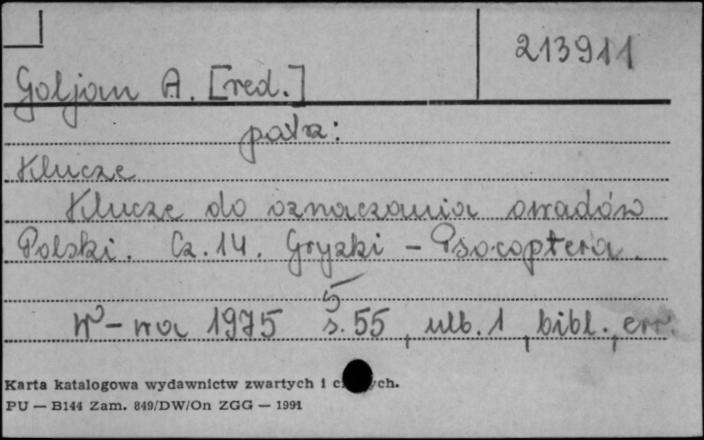 213911
Goljan A. [red.]
patrz:
Klucze
Klucze do oznaczania owadów
Polski. Cz. 14. Gryzki – Psocoptera.
5
W-wa 1975 s. 55, ulb. 1, bibl., err.
Karta katalogowa wydawnictw zwartych i
PU — B144 Zam. 849/DW/On ZGG — 1991